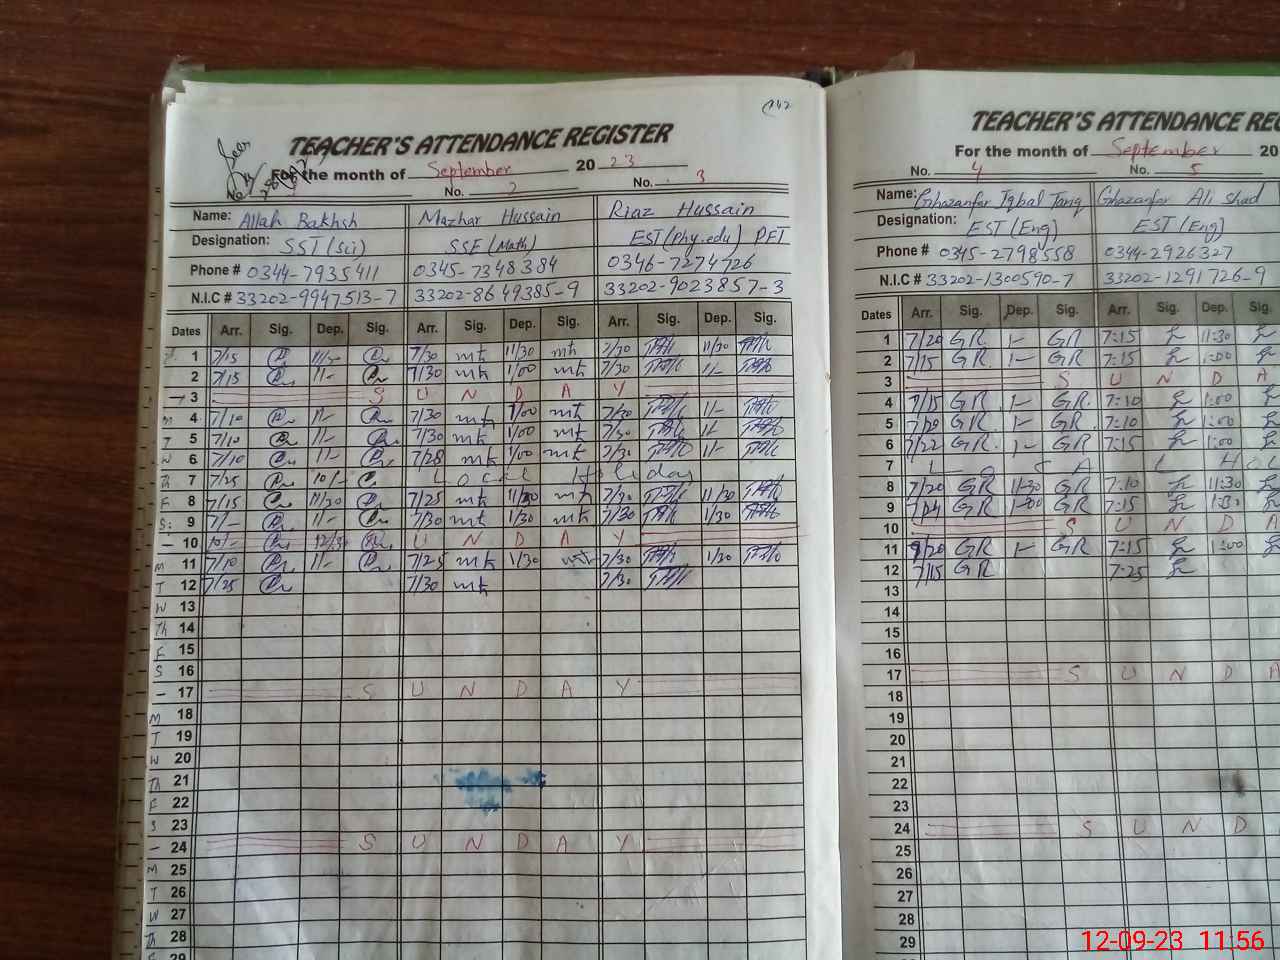 TEACHER'S ATTENDANCE REGISTER
For the month of September 20 23
No. 2 No. 3
Name: Allah Bakhsh Mazhar Hussain Riaz Hussain
Designation: SST (Sci) SSE (Math) EST (Phy.edu) PFT
Phone # 0344-7935411 0345-7348384 0346-7274726
N.I.C # 33202-9947513-7 33202-8649385-9 33202-9023857-3
Dates Arr. Sig. Dep. Sig. Arr. Sig. Dep. Sig. Arr. Sig. Dep. Sig.
1 7/15 11/- 7/30 mh 11/30 mh 7/30 11/30
2 7/15 11- 7/30 mh 1/00 mh 7/30 11-
3 S U N D A Y
M 4 7/10 11- 7/30 mh 1/00 mh 7/30 11-
T 5 7/10 11- 7/30 mh 1/00 mh 7/30 11-
W 6 7/10 11- 7/28 mh 1/00 mh 7/30 11-
Th 7 7/25 10/- Local Holiday
F 8 7/15 11/30 7/25 mh 11/30 mh 7/30 11/30
S 9 7/- 11- 7/30 mh 1/30 mh 7/30 1/30
- 10 10/- 12/30 U N D A Y
M 11 7/10 11- 7/25 mh 1/30 7/30 1/30
T 12 7/25 7/30 mh 7/30
W 13
Th 14
F 15
S 16
- 17 S U N D A Y
M 18
T 19
W 20
Th 21
F 22
S 23
- 24 S U N D A Y
M 25
T 26
W 27
Th 28
F 29
TEACHER'S ATTENDANCE REG
For the month of September 20
No. 4 No. 5
Name: Ghazanfar Iqbal Tang Ghazanfar Ali Shad
Designation: EST (Eng) EST (Eng)
Phone # 0345-2798558 0344-2926327
N.I.C # 33202-1300590-7 33202-1291726-9
Dates Arr. Sig. Dep. Sig. Arr. Sig. Dep. Sig.
1 7/20 GR 1- GR 7:15 11:30
2 7/15 GR 1- GR 7:15 1:00
3 S U N D A
4 7/15 GR 1- GR 7:10 1:00
5 7/20 GR 1- GR 7:10 1:00
6 7/22 GR 1- GR 7:15 1:00
7 L O C A L H O L
8 7/20 GR 11-30 GR 7:10 11:30
9 GR GR 7:15 1:30
10 S U N D A
11 GR 1- GR 7:15 1:00
12 7/15 GR 7:25
13
14
15
16
17 S U N D A
18
19
20
21
22
23
24 S U N D
25
26
27
28
29
12-09-23 11:56